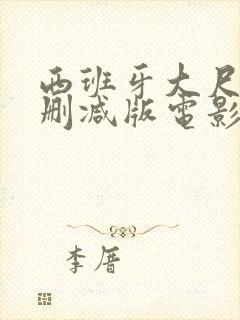 西班牙大尺
删减版电影
李厝